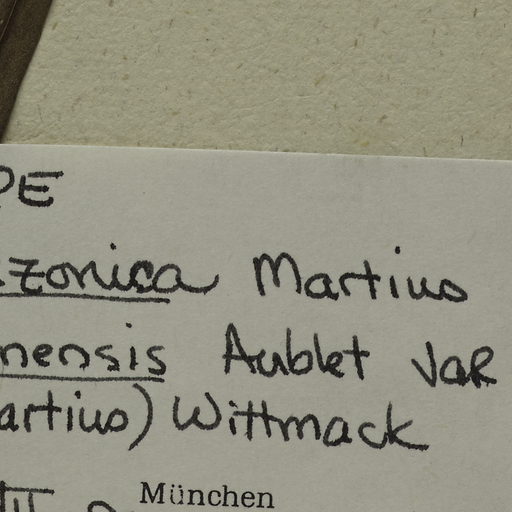 PE
zonica Martius
nensis Aublet var
artius) Wittmack
München